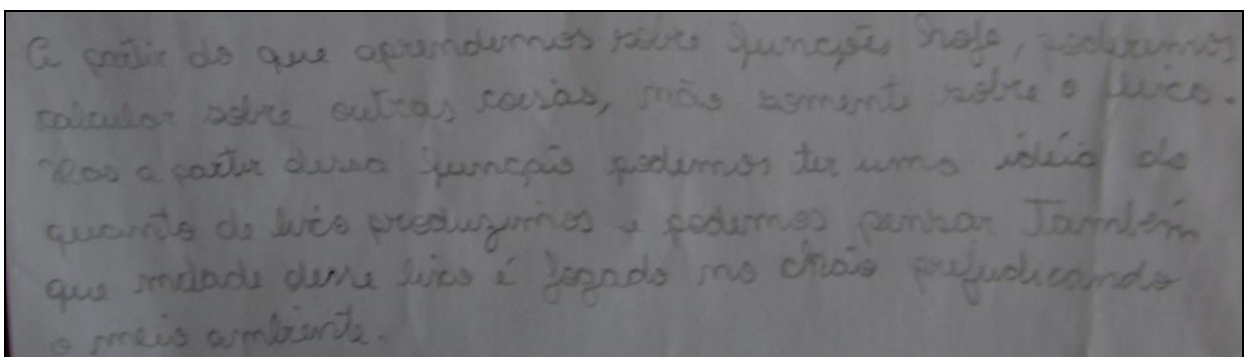 A partir do que aprendemos sobre função hoje, poderemos
calcular sobre outras coisas, não somente sobre o lixo.
Mas a partir dessa função podemos ter uma idéia do
quanto de lixo produzimos e podemos pensar Também
que metade desse lixo é jogado no chão prejudicando
o meio ambiente.